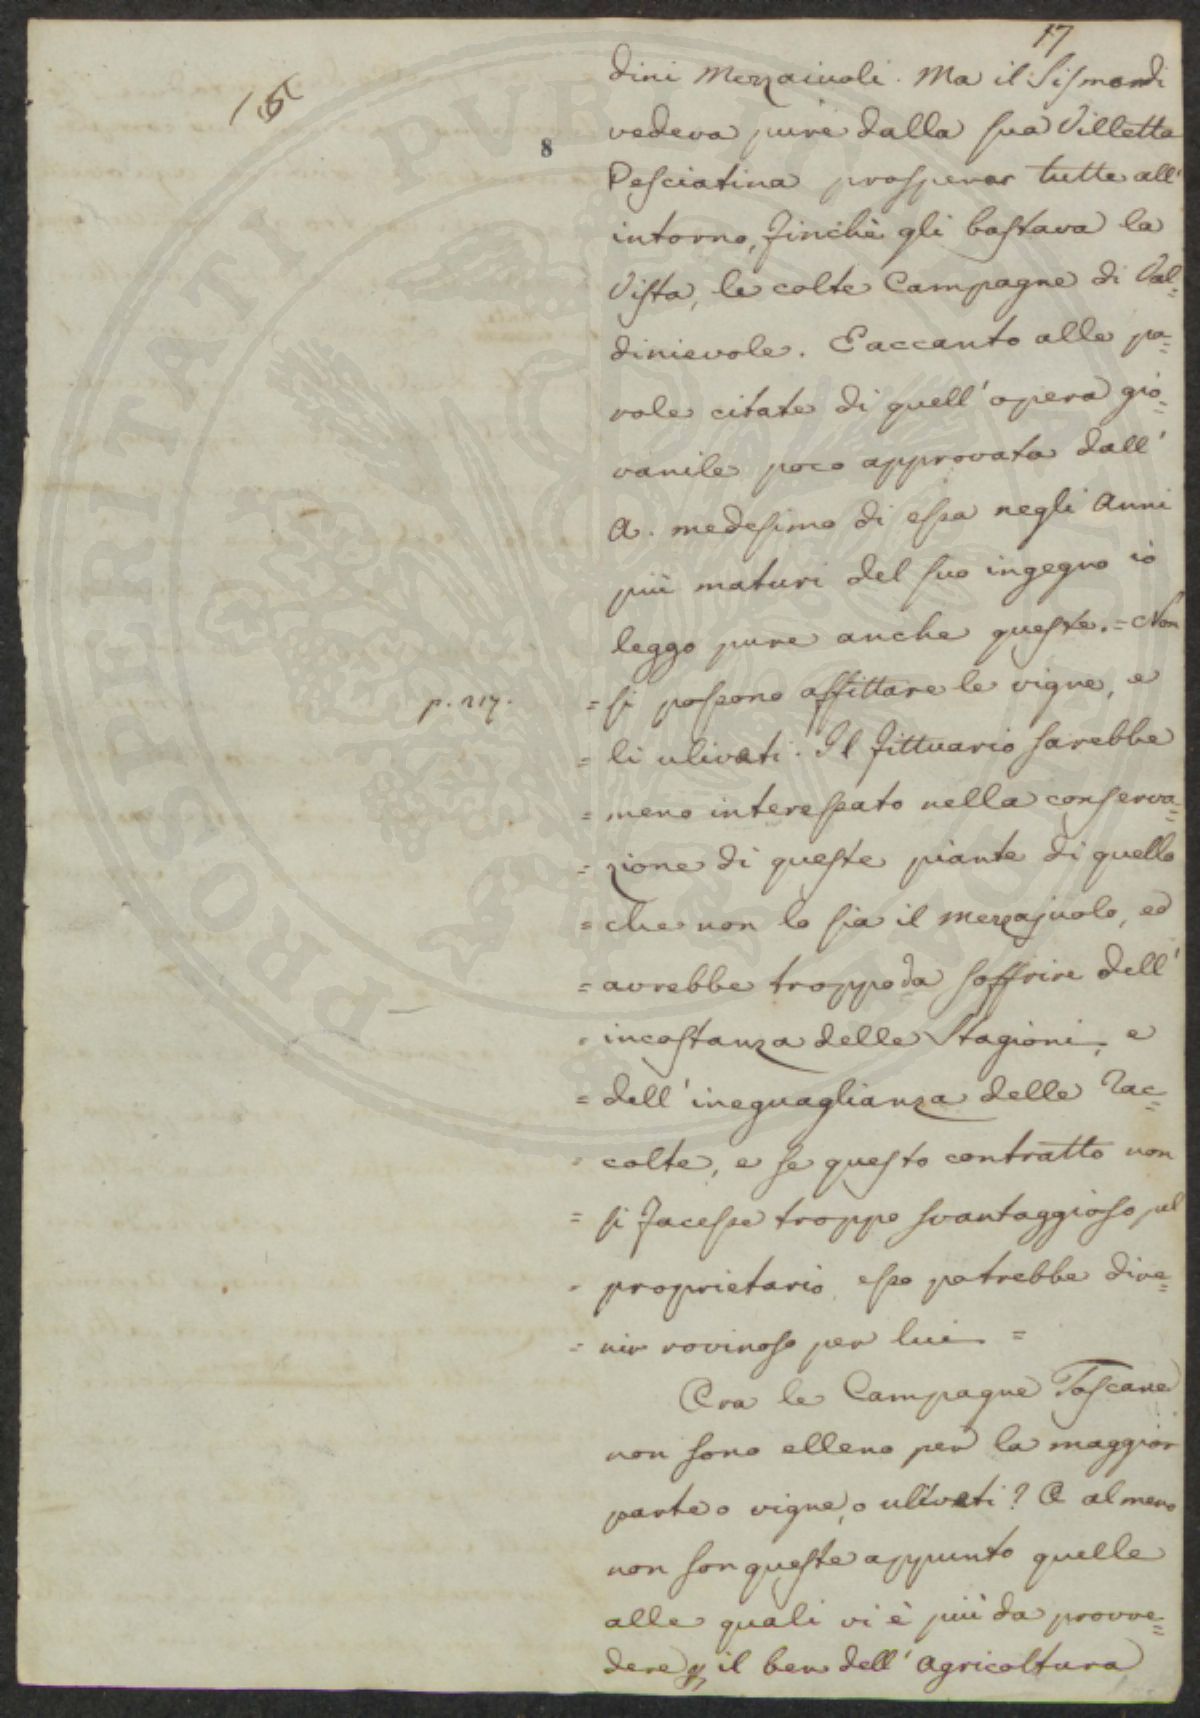 17
16
8
dini Mezzaiuoli. Ma il Sismondi
vedeva pure dalla sua Villetta
Pesciatina prosperar tutte all'
intorno, finchè gli bastava la
Vista, le colte Campagne di Val=
dinievole. E accanto alle pa=
role citate di quell'opera gio=
vanile poco approvata dall'
A. medesimo di essa negli anni
più maturi del suo ingegno io
leggo pure anche queste. = Non
p. 217.
= si possono affittare le vigne, e
= li uliveti. Il fittuario sarebbe
= meno interessato nella conserva=
= zione di queste piante di quello
= che non lo sia il mezzajuolo, ed
= avrebbe troppo da soffrire dell'
= incostanza delle Stagioni, e
= dell'ineguaglianza delle Rac=
= colte, e se questo contratto non
= si facesse troppo svantaggioso pel
= proprietario esso potrebbe dive=
= nir rovinoso per lui =
Ora le Campagne Toscane
non sono elleno per la maggior
parte o vigne, o uliveti? O almeno
non son queste appunto quelle
alle quali vi è più da provve=
dere p il ben dell'agricoltura
PROSPERITATI PVBLICAE